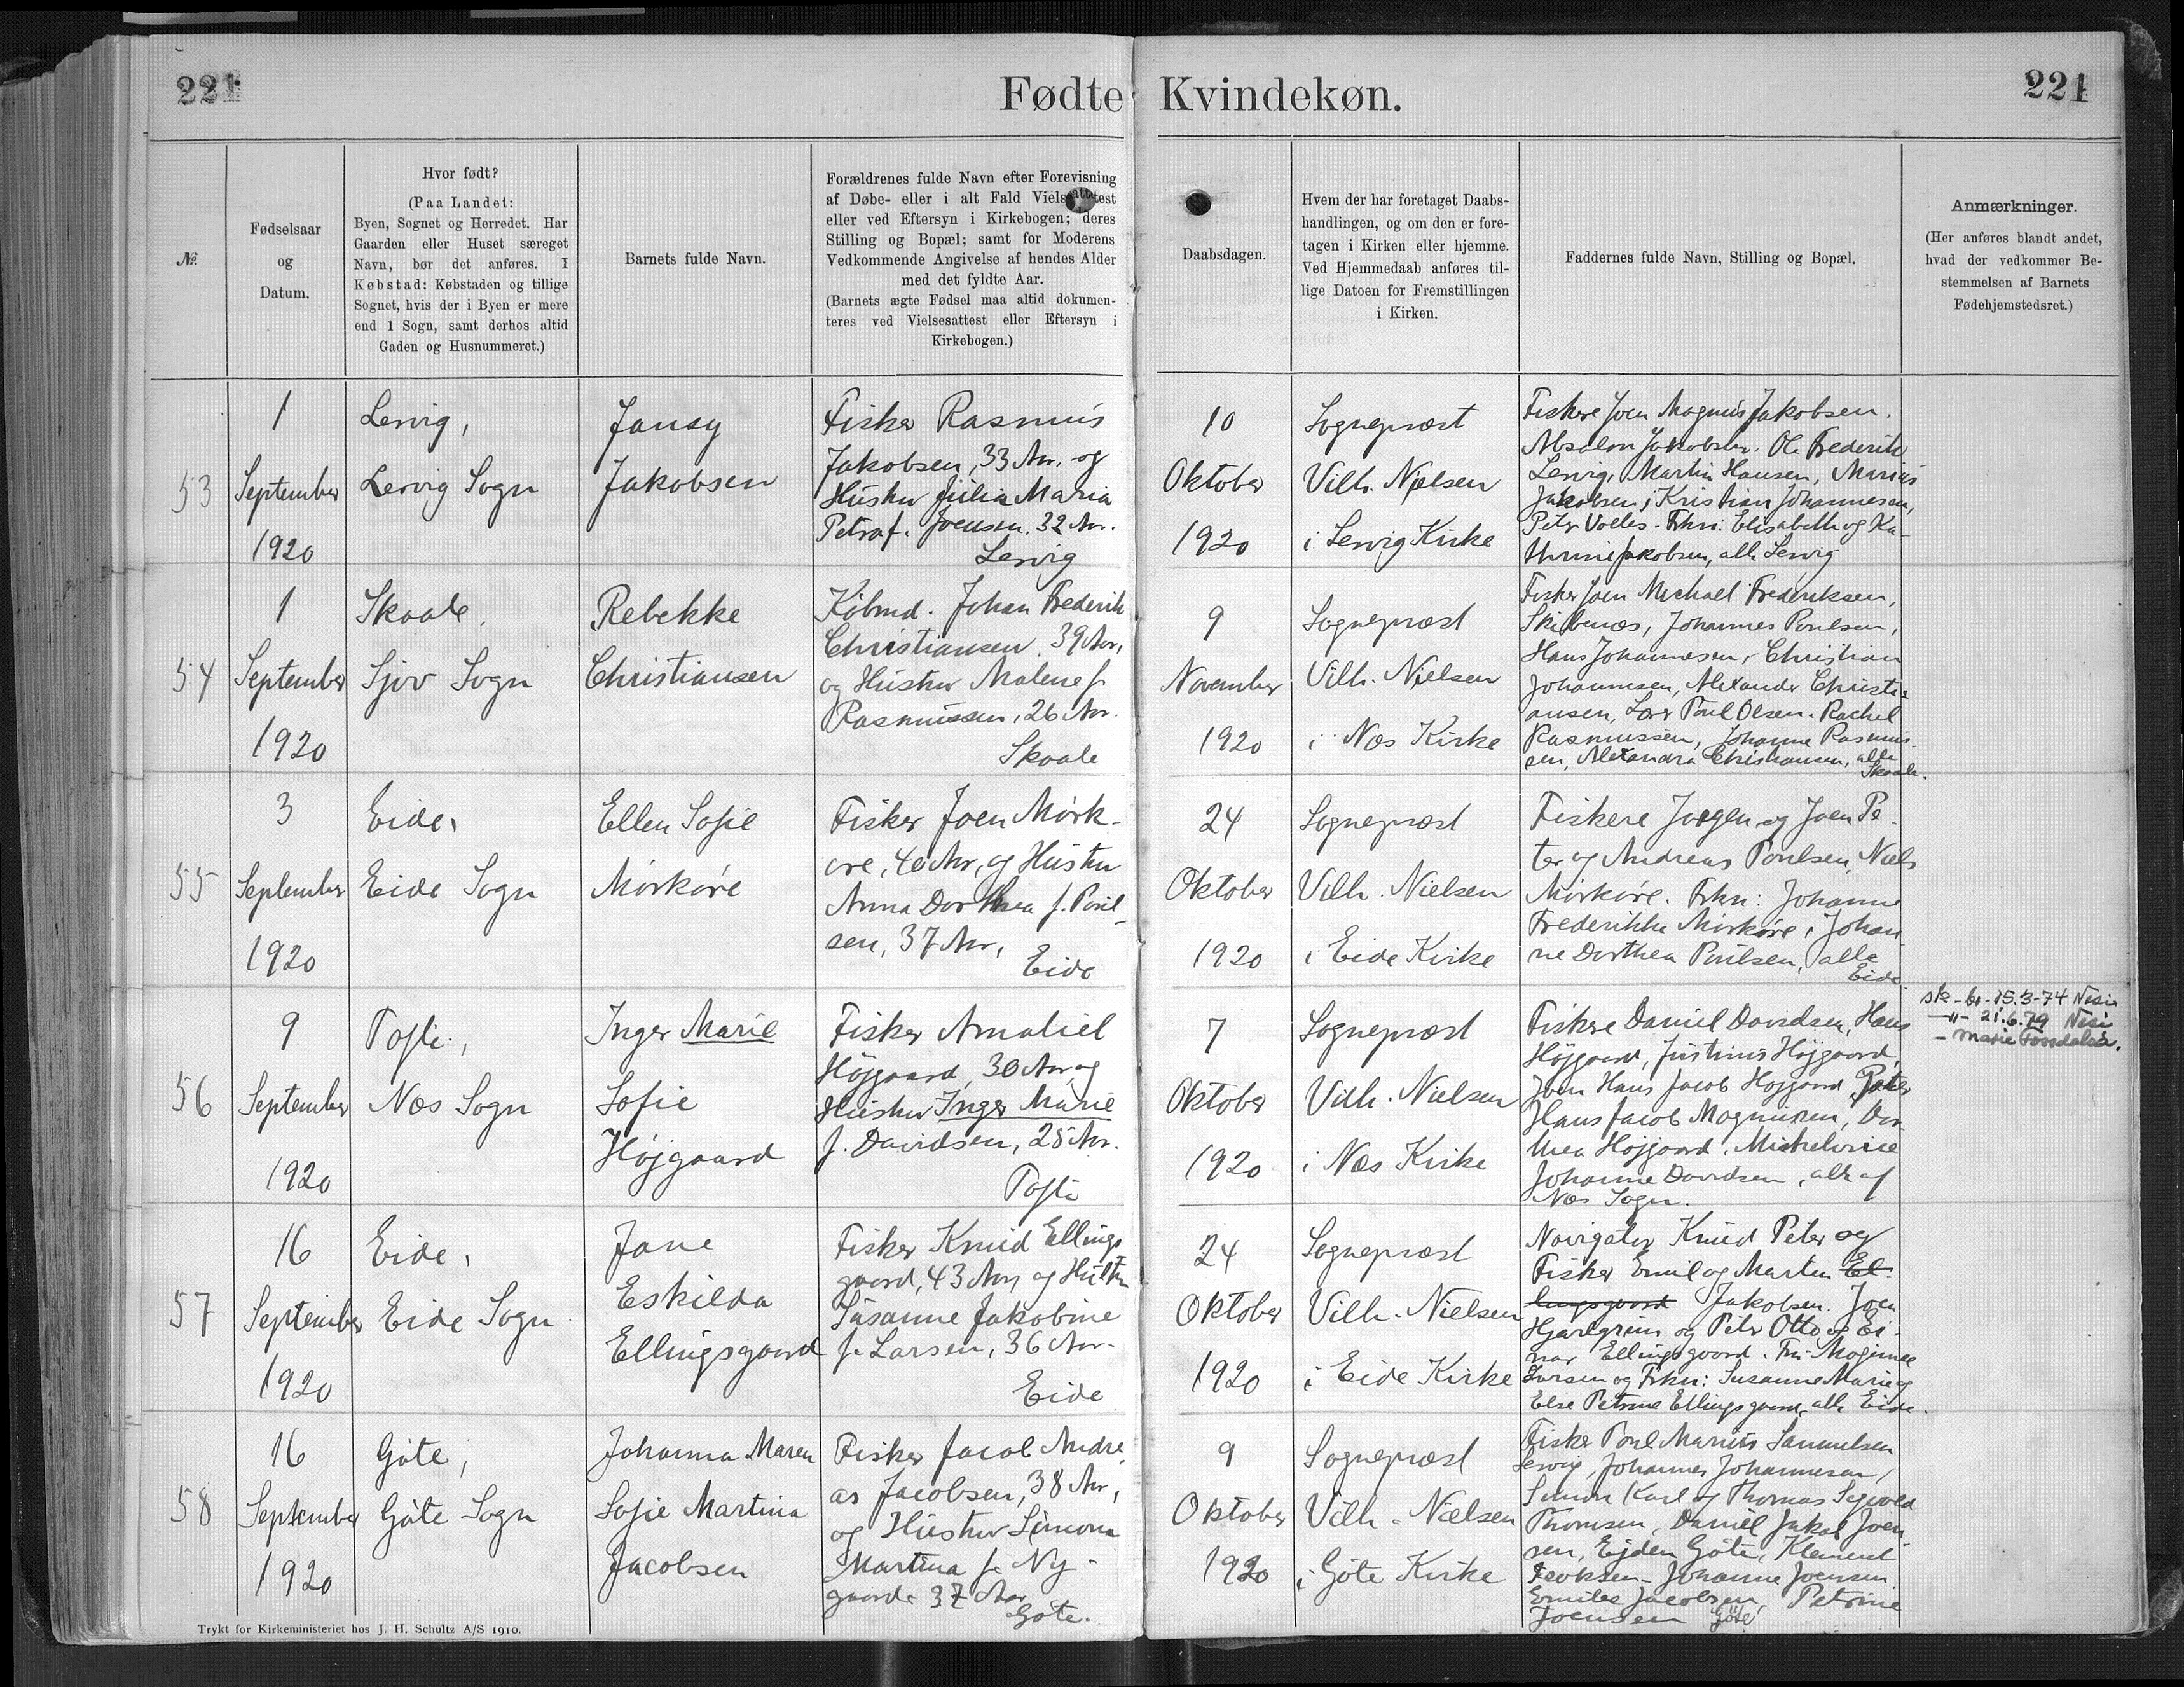 221
Fødte Kvindekøn.
221
№.
Fødselsaar
og
Datum.
Hvor født?
(Paa Landet:
Byen, Sognet og Herredet. Har
Gaarden eller Huset særeget
Navn, bør det anføres. I
Købstad: Købstaden og tillige
Sognet, hvis der i Byen er mere
end 1 Sogn, samt derhos altid
Gaden og Husnummeret.)
Barnets fulde Navn.
Forældrenes fulde Navn efter Forevisning
af Døbe- eller i alt Fald Vielsesattest
eller ved Eftersyn i Kirkebogen; deres
Stilling og Bopæl; samt for Moderens
Vedkommende Angivelse af hendes Alder
med det fyldte Aar.
(Barnets ægte Fødsel maa altid dokumen-
teres ved Vielsesattest eller Eftersyn i
Kirkebogen.)
Daabsdagen.
Hvem der har foretaget Daabs-
handlingen, og om den er fore-
tagen i Kirken eller hjemme.
Ved Hjemmedaab anføres til-
lige Datoen for Fremstillingen
i Kirken.
Faddernes fulde Navn, Stilling og Bopæl.
Anmærkninger.
(Her anføres blandt andet,
hvad der vedkommer Be-
stemmelsen af Barnets
Fødehjemstedsret.)
53
1
September
1920
Lervig,
Lervig Sogn
Jansy
Jakobsen
Fisker Rasmus
Jakobsen, 33 Aar, og
Hustru Julia Maria
Petra f. Joensen, 32 Aar.
Lervig
10
Oktober
1920
Sognepræst
Vilh. Nielsen
i Lervig Kirke
Fiskere Joen Magnus Jakobsen.
Absalon Jakobsen. Ole Frederik
Lervig, Martin Hansen, Marius
Jakobsen, Kristian Johannesen,
Peter Volles. Frkn: Elisabeth og Ka-
thrine Jakobsen, alle Lervig
54
1
September
1920
Skaale,
Sjov Sogn
Rebekke
Christiansen
Købmd. Johan Frederik
Christiansen, 39 Aar,
og Hustru Malene f.
Rasmussen, 26 Aar.
Skaale
9
November
1920
Sognepræst
Vilh. Nielsen
i Næs Kirke
Fisker Joen Michael Frederiksen,
Skibenæs, Johannes Poulsen,
Hans Johannesen, Christian
Johannesen, Alexander Christi-
ansen, Lærer Poul Olsen. Rachel
Rasmussen, Johanne Rasmus-
sen, Alexandra Christiansen, alle
Skaale.
55
3
September
1920
Eide,
Eide Sogn
Ellen Sofie
Mörköre
Fisker Joen Mörk-
öre, 40 Aar, og Hustru
Anna Dorthea f. Poul-
sen, 37 Aar,
Eide
24
Oktober
1920
Sognepræst
Vilh. Nielsen
i Eide Kirke
Fiskere Jørgen og Joen Pe-
ter og Andreas Poulsen, Niels
Mörköre. Frkn: Johanne
Frederikke Mörköre, Johan-
ne Dorthea Poulsen, alle
Eide.
56
9
September
1920
Tofte,
Næs Sogn
Inger Marie
Sofie
Höjgaard
Fisker Amaliel
Höjgaard, 30 Aar og
Hustru Inger Marie
f. Davidsen, 25 Aar.
Tofte
7
Oktober
1920
Sognepræst
Vilh. Nielsen
i Næs Kirke
Fiskere Daniel Davidsen, Hans
Höjgaard, Justinus Höjgaard,
Joen Hans Jacob Höjgaard, Peter
Hans Jacob Magnusen, Dor-
thea Höjgaard, Michelvine
Johanne Davidsen, alle af
Næs Sogn.
sk-br-15.3-74 Nesi
-"- 21.6.79 Nesi
- Marie Fossdalsá.
57
16
September
1920
Eide,
Eide Sogn
Jane
Eskilda
Ellingsgaard
Fisker Knud Ellings
gaard, 43 Aar, og Hustru
Susanne Jakobine
f. Larsen, 36 Aar.
Eide
24
Oktober
1920
Sognepræst
Vilh. Nielsen
i Eide Kirke
Navigatør Knud Peter og
Fisker Emil og Marten El-
lingsgaard Jakobsen. Joen
Hjarlgrim og Peter Otto og Ei-
nar Ellingsgaard. Fru Maginne
Larsen og Frkn: Susanne Marie og
Else Petrine Ellingsgaard, alle Eide.
58
16
September
1920
Göte,
Göte Sogn
Johanna Maren
Sofie Martina
Jacobsen
Fisker Jacob Andre-
as Jacobsen, 38 Aar,
og Hustru Simona
Martina f. Ny-
gaard 37 Aar
Göte.
9
Oktober
1920
Sognepræst
Vilh. Nielsen
i Göte Kirke
Fisker Poul Marius Samuelsen
Lervig, Johannes Johannesen,
Simon Karl og Thomas Sigvald
Thomsen, Daniel Jakob Joen-
sen, Ejden Göte, Klement
Isaksen - Johanne Joensen
Emilie Jacobsen, Petrine
Joensen Göte
Trykt for Kirkeministeriet hos J. H. Schultz A/S 1910.